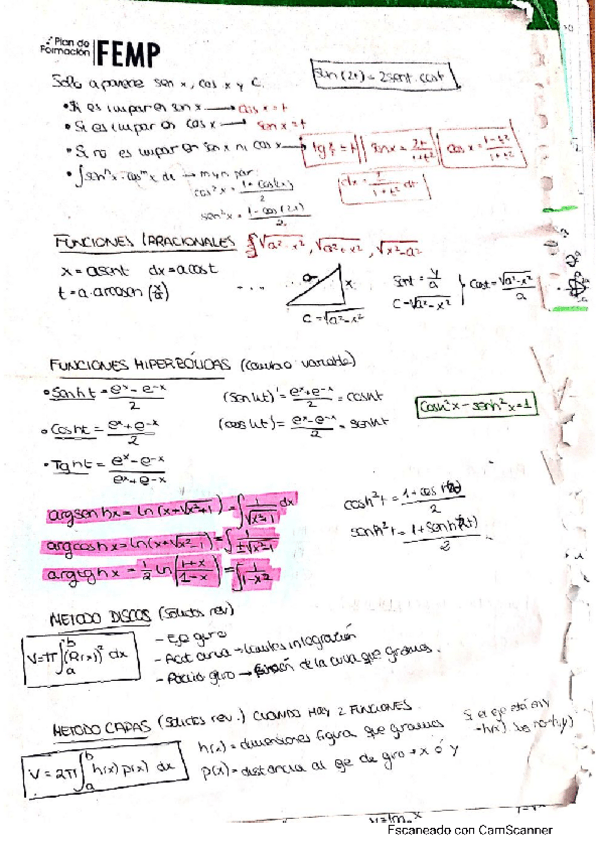 Plan de
Formación | FEMP
Solo aparece sen x, cos x y C.
sen(2t) = 2sent·cost
• Si es impar en sin x → cos x = t
• Si es impar en cos x → sen x = t
• Si no es impar en sin x ni cos x → tg = t senx = 2t/1+t² cos x = 1-t²/1+t²
• ∫senⁿx·cosᵐx dx → m y n par
dx = 1+t² dt
cos²x = 1+cos(2x)/2
sen²x = 1-cos(2x)/2
FUNCIONES IRRACIONALES √a²-x², √a²+x², √x²-a²
x = asent dx = acost
t = a·arcosen(x/a)
a x
c = √a²-x²
sent = y/a
c = √a²-x²
cost = √a²-x²/a
FUNCIONES HIPERBÓLICAS (cambio variable)
• Senht = eˣ-e⁻ˣ/2 (senht)' = eˣ+e⁻ˣ/2 = cosht
• Cosht = eˣ+e⁻ˣ/2 = eˣ-e⁻ˣ/2 = senht
cosh²x - senh²x = 1
• Tght = eˣ-e⁻ˣ/eˣ+e⁻ˣ
argsenhx = ln(x+√x²+1) = ∫1/√x²+1 dx
argcoshx = ln(x+√x²-1) = ∫1/±√x²-1
argtghx = 1/2 ln(1+x/1-x) = ∫1/1-x²
cosh²t =
senh²t =
METODO DISCOS (solidos rev)
V = π∫ᵇₐ(R(x))² dx
- Eje giro
- Acot curva → limites integración
- Radio giro → función de la curva que giramos.
METODO CAPAS (solidos rev.) CUANDO HAY 2 FUNCIONES.
V = 2π∫ᵇₐ h(x) p(x) dx
h(x) = dimensiones figura que giramos
p(x) = distancia al eje de giro → x ó y
Si el eje está en y
Escaneado con CamScanner